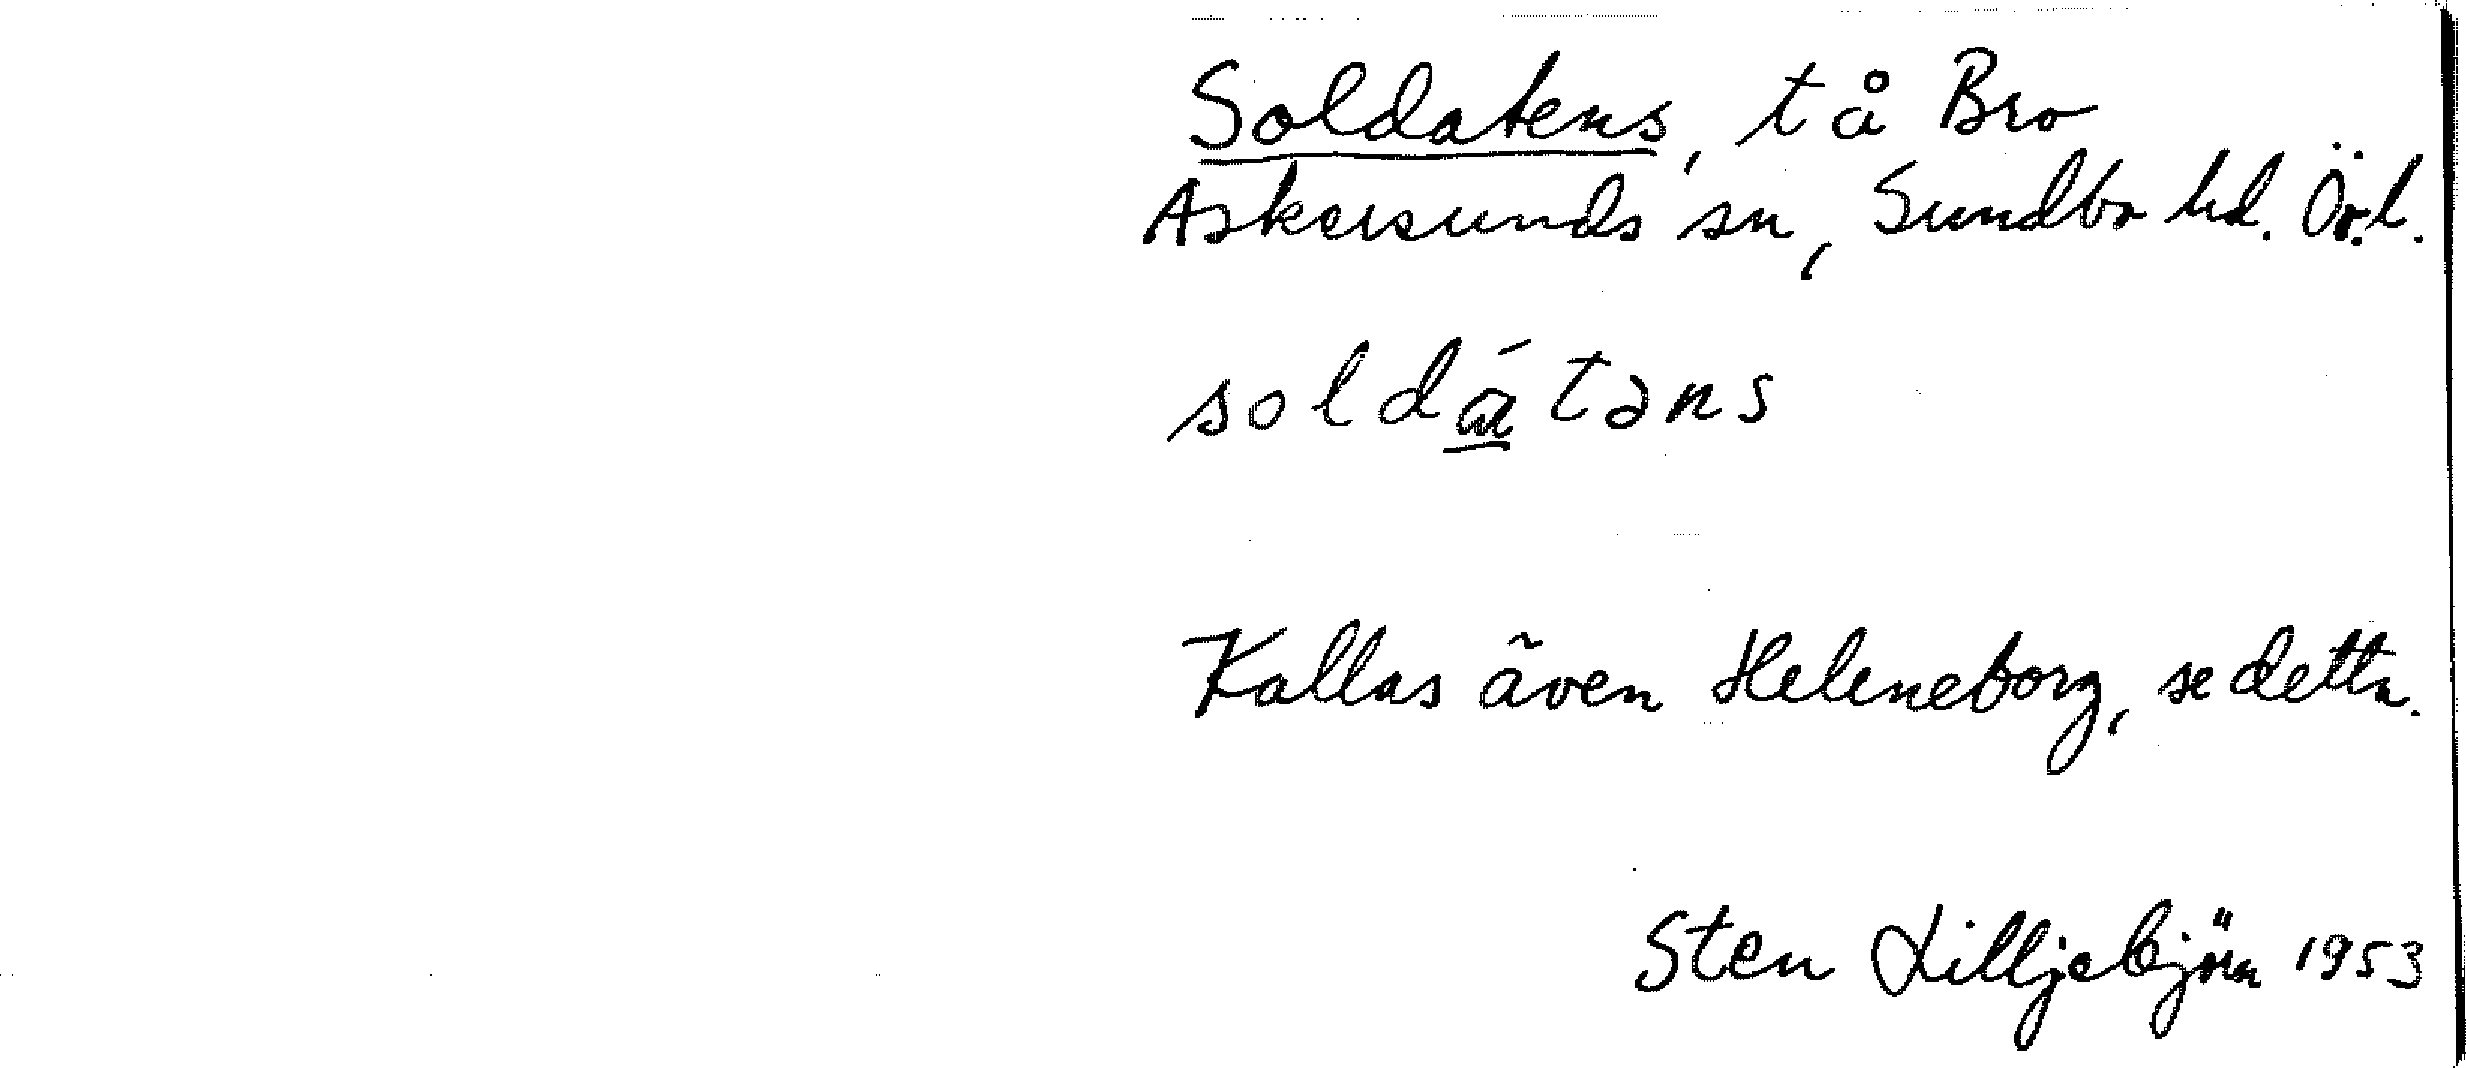 Soldatens, tå Bro
Askersunds sn, Sundbo hd. Ör.l.
soldátəns
Kallas även Heleneborg, se detta.
Sten Lilljebjörn 1953